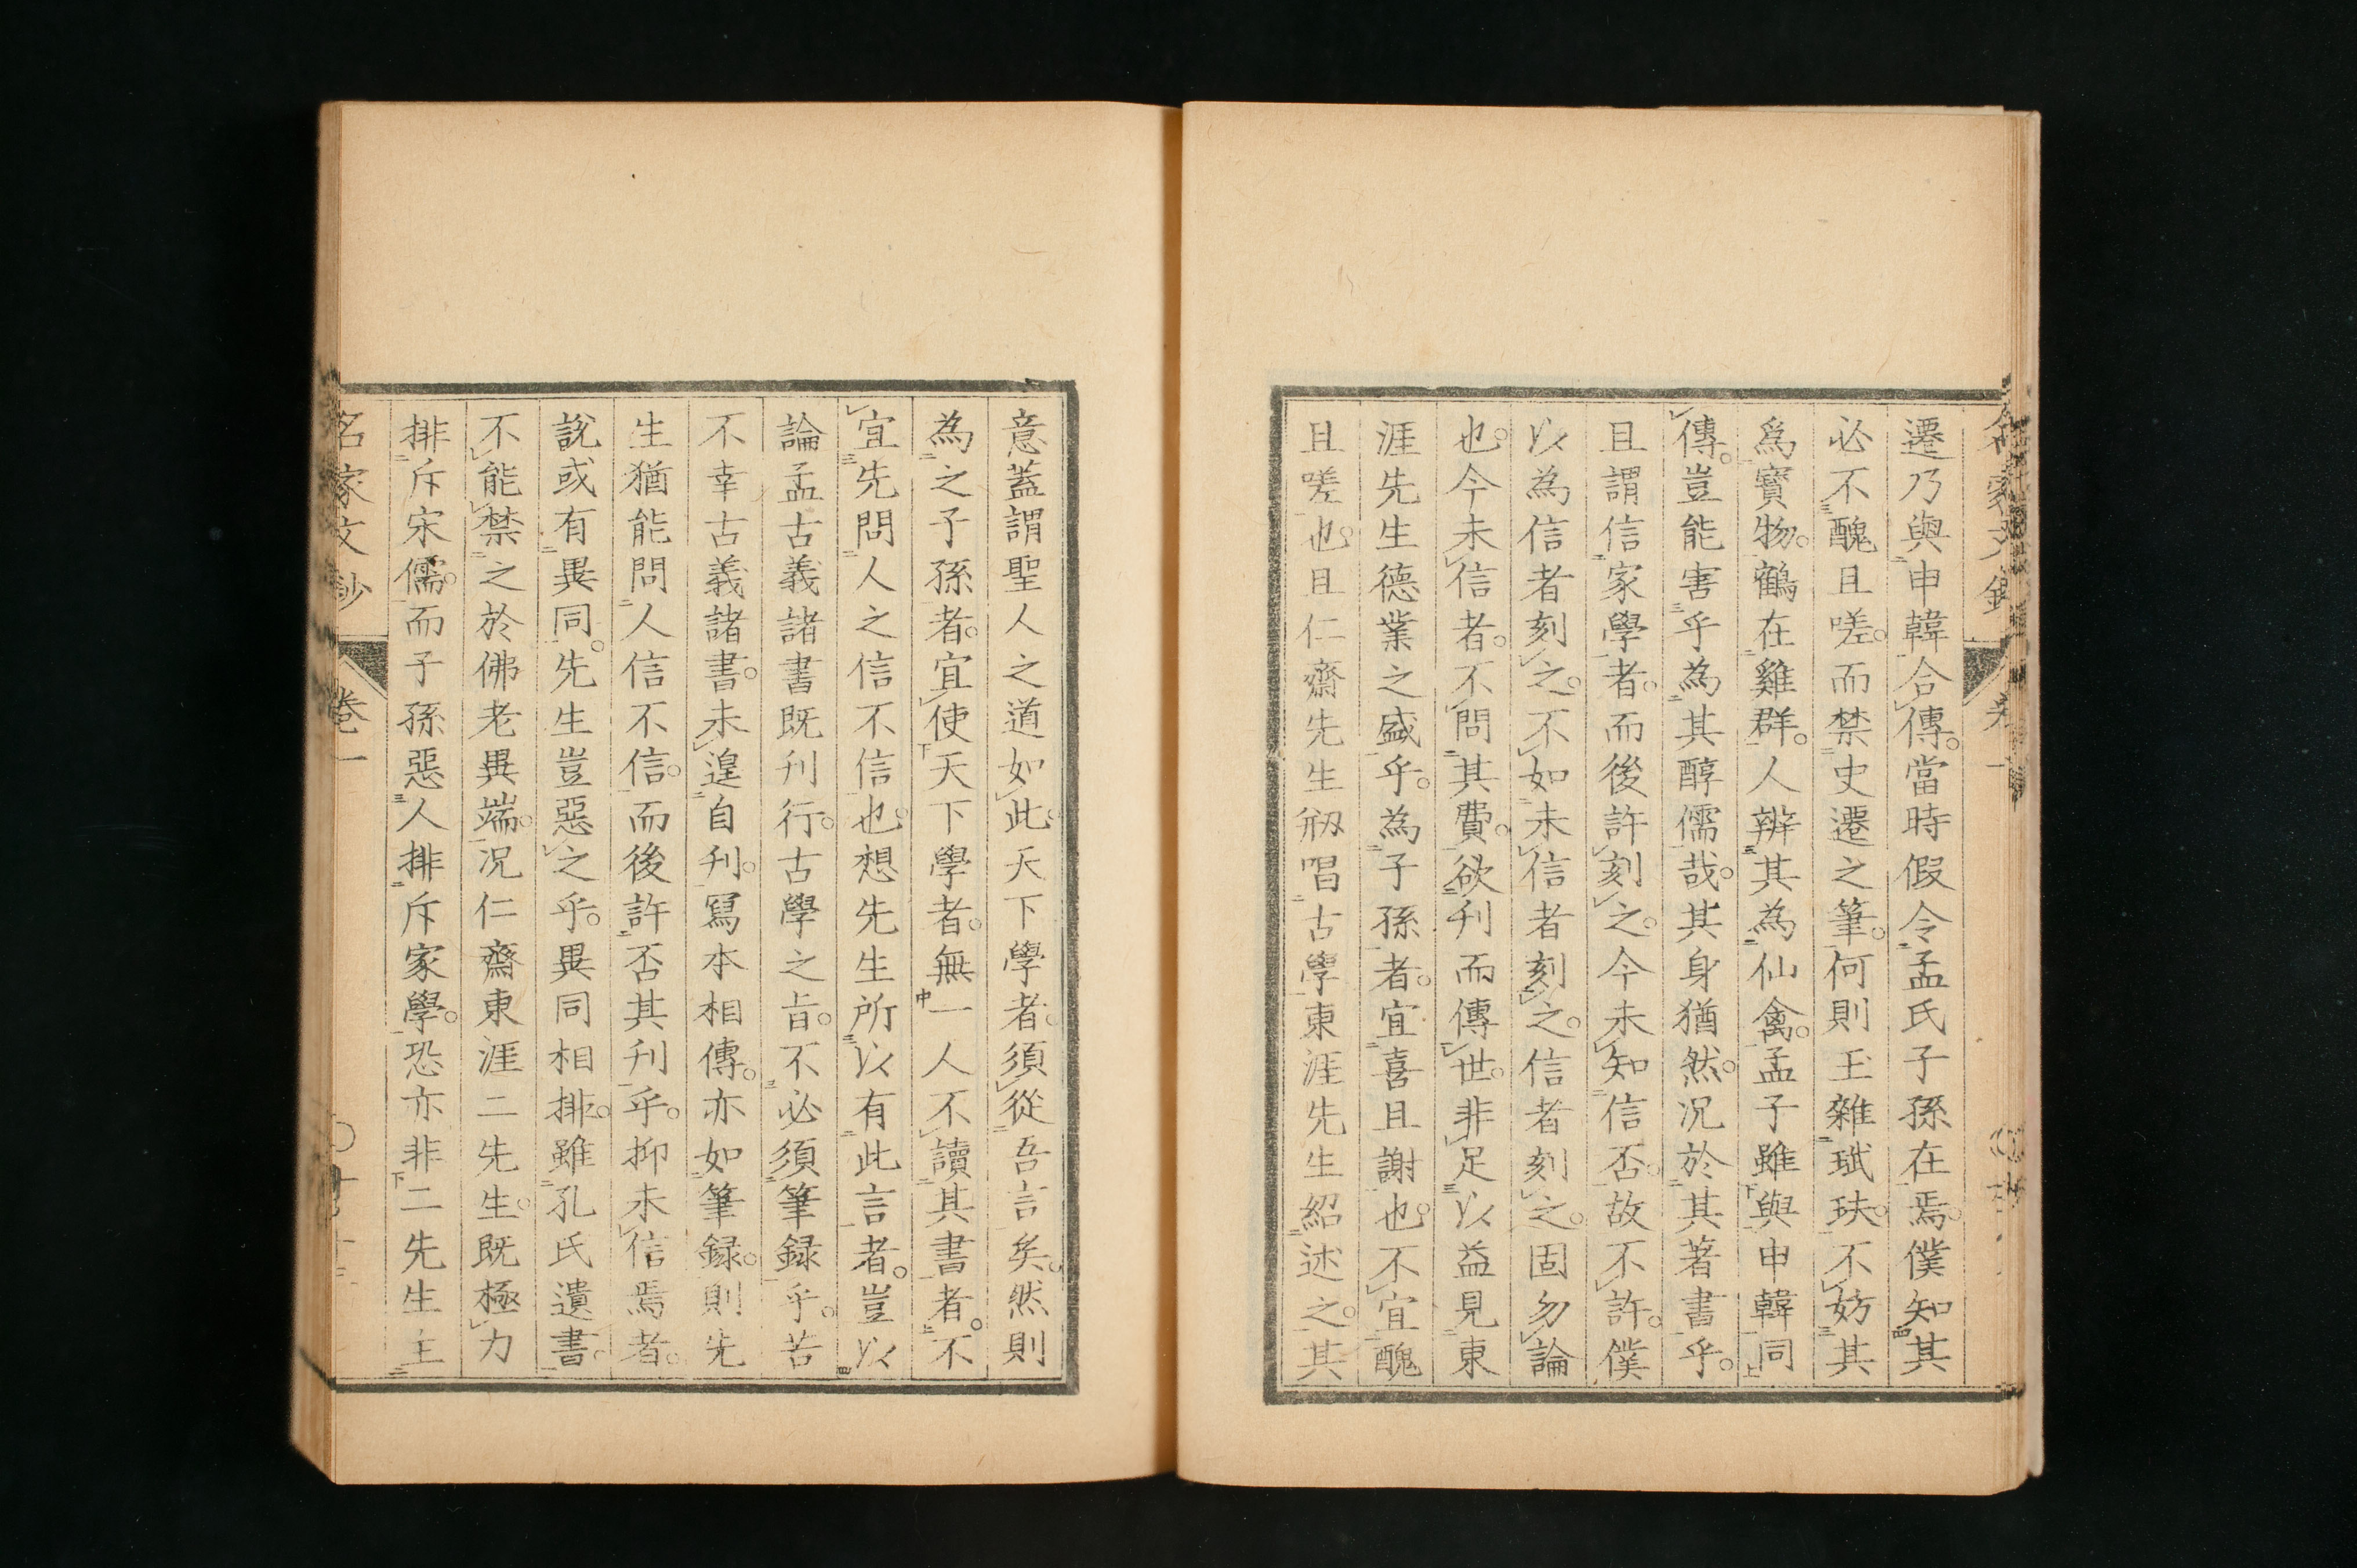 遷乃與申韓合傳。當時假令孟氏子孫在焉。僕知其
必不醜且嗟。而禁史遷之筆。何則玉雜珷玞。不妨其
爲寶物。鶴在雞群。人辨其為仙禽。孟子雖與申韓同
傳。豈能害乎為其醇儒哉。其身猶然。况於其著書乎。
且謂信家學者。而後許刻之。今未知信否。故不許。僕
以為信者刻之。不如未信者刻之。信者刻之。固勿論
也。今未信者。不問其費。欲刊而傳世。非足以益見東
涯先生德業之盛乎。為子孫者。宜喜且謝也。不宜醜
且嗟也。且仁齋先生剏唱古學東涯先生紹述之。其
意蓋謂聖人之道如此。天下學者。須從吾言矣。然則
為之子孫者。宜使天下學者。無一人不讀其書者。不
宜先問人之信不信也。想先生所以有此言者。豈以
論孟古義諸書既刊行。古學之旨。不必須筆録乎。若
不幸古義諸書。未遑自刊。冩本相傳。亦如筆録。則先
生猶能問人信不信。而後許否其刊乎。抑未信焉者。
說或有異同。先生豈惡之乎。異同相排。雖孔氏遺書。
不能禁之於佛老異端。况仁齋東涯二先生。既極力
排斥宋儒。而子孫惡人排斥家學。恐亦非二先生主
名家文鈔
卷一